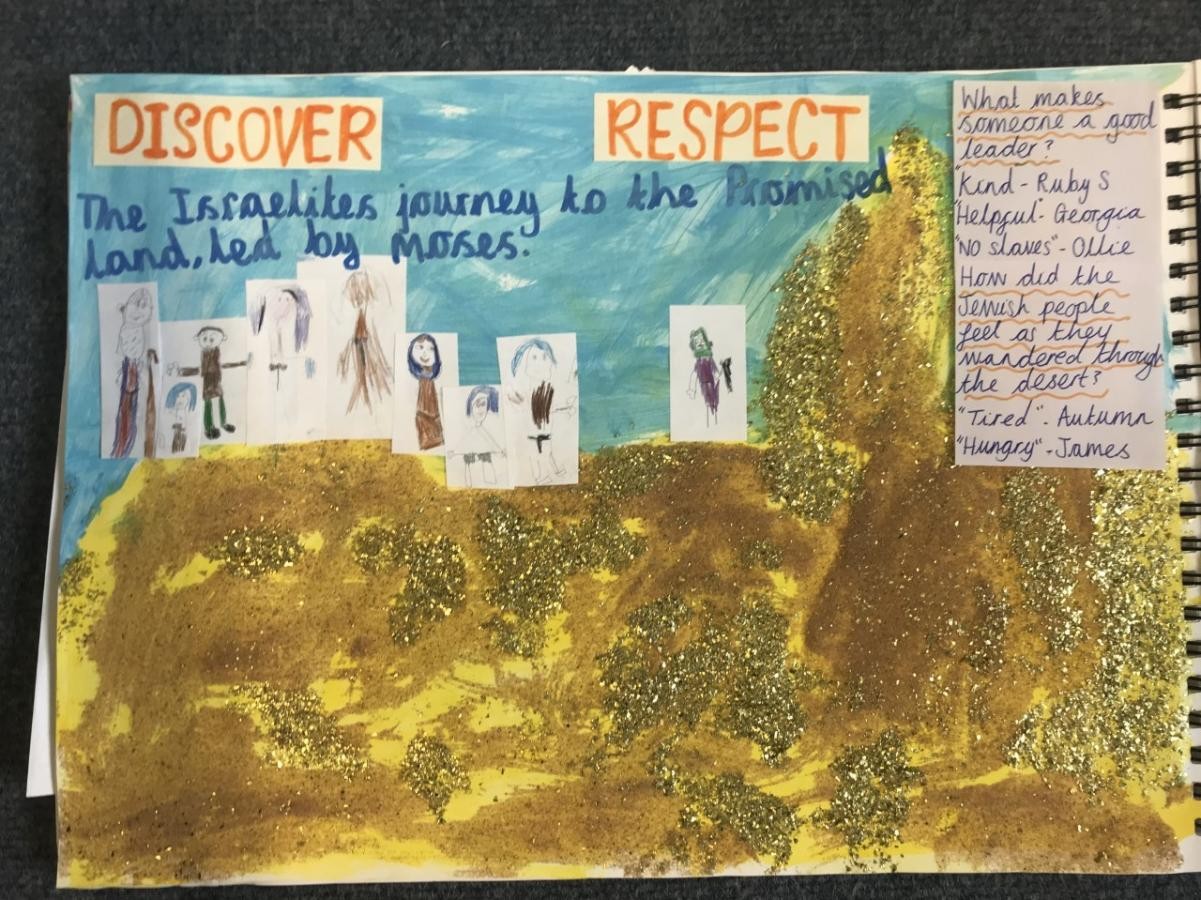 DISCOVER
RESPECT
The Israelites journey to the Promised
land, led by Moses.
What makes
someone a good
leader?
"Kind - Ruby S
"Helpful - Georgia
"No slaves" - Ollie
How did the
Jewish people
feel as they
wandered through
the desert?
"Tired". Autumn
"Hungry" - James